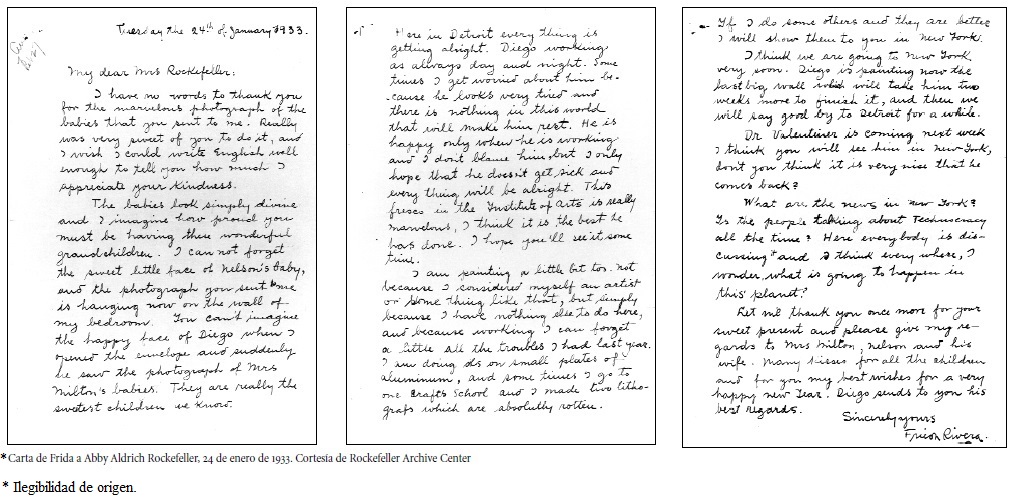 Tuesday the 24th of January 1933.
My dear Mrs Rockefeller:
I have no words to thank you
for the marvelous photograph of the
babies that you sent to me. Really
was very sweet of you to do it, and
I wish I could write English well
enough to tell you how much I
appreciate your kindness.
The babies look simply divine
and I imagine how proud you
must be having these wonderful
grandchildren. I can not forget
the sweet little face of Nelson's baby,
and the photograph you sent me
is hanging now on the wall of
my bedroom. You can't imagine
the happy face of Diego when I
opened the envelope and suddenly
he saw the photograph of Mrs
Milton's babies. They are really the
swetest children we know.
Here in Detroit every thing is
getting alright. Diego working
as allways day and night. Some
times I get worried about him be-
cause he looks very tired and
there is nothing in this world
that will make him rest. He is
happy only when he is working
and I don't blame him, but I only
hope that he doesn't get sick and
every thing will be alright. The
fresco in the Institute of Arts is really
marvelous, I think it is the best he
has done. I hope you'll see it some
time.
I am painting a little bit too. not
because I considered myself an artist
or some thing like that, but simply
because I have nothing else to do here,
and because working I can forget
a little all the troubles I had last year.
I am doing oils on small plates of
aluminum, and some times I go to
one crafts school and I made two litho-
grafs which are absolutly rotten.
If I do some others and they are better
I will show them to you in New York.
I think we are going to New York
very soon. Diego is painting now the
last big wall which will take him two
weeks more to finish it, and then we
will say good by to Detroit for a while.
Dr. Valentiner is coming next week
I think you will see him in New York,
don't you think it is very nice that he
comes back?
What are the news in New York?
Is the people talking about Technocracy
all the time? Here everybody is dis-
cussing * and I think every where, I
wonder what is going to happen in
this planet?
Let me thank you once more for your
sweet present and please give my re-
gards to Mrs Milton, Nelson and his
wife. Many kisses for all the children
and for you my best wishes for a very
happy new Year. Diego sends to you his
best regards.
Sincerely yours
Frieda Rivera.
*Carta de Frida a Abby Aldrich Rockefeller, 24 de enero de 1933. Cortesía de Rockefeller Archive Center
* Ilegibilidad de origen.